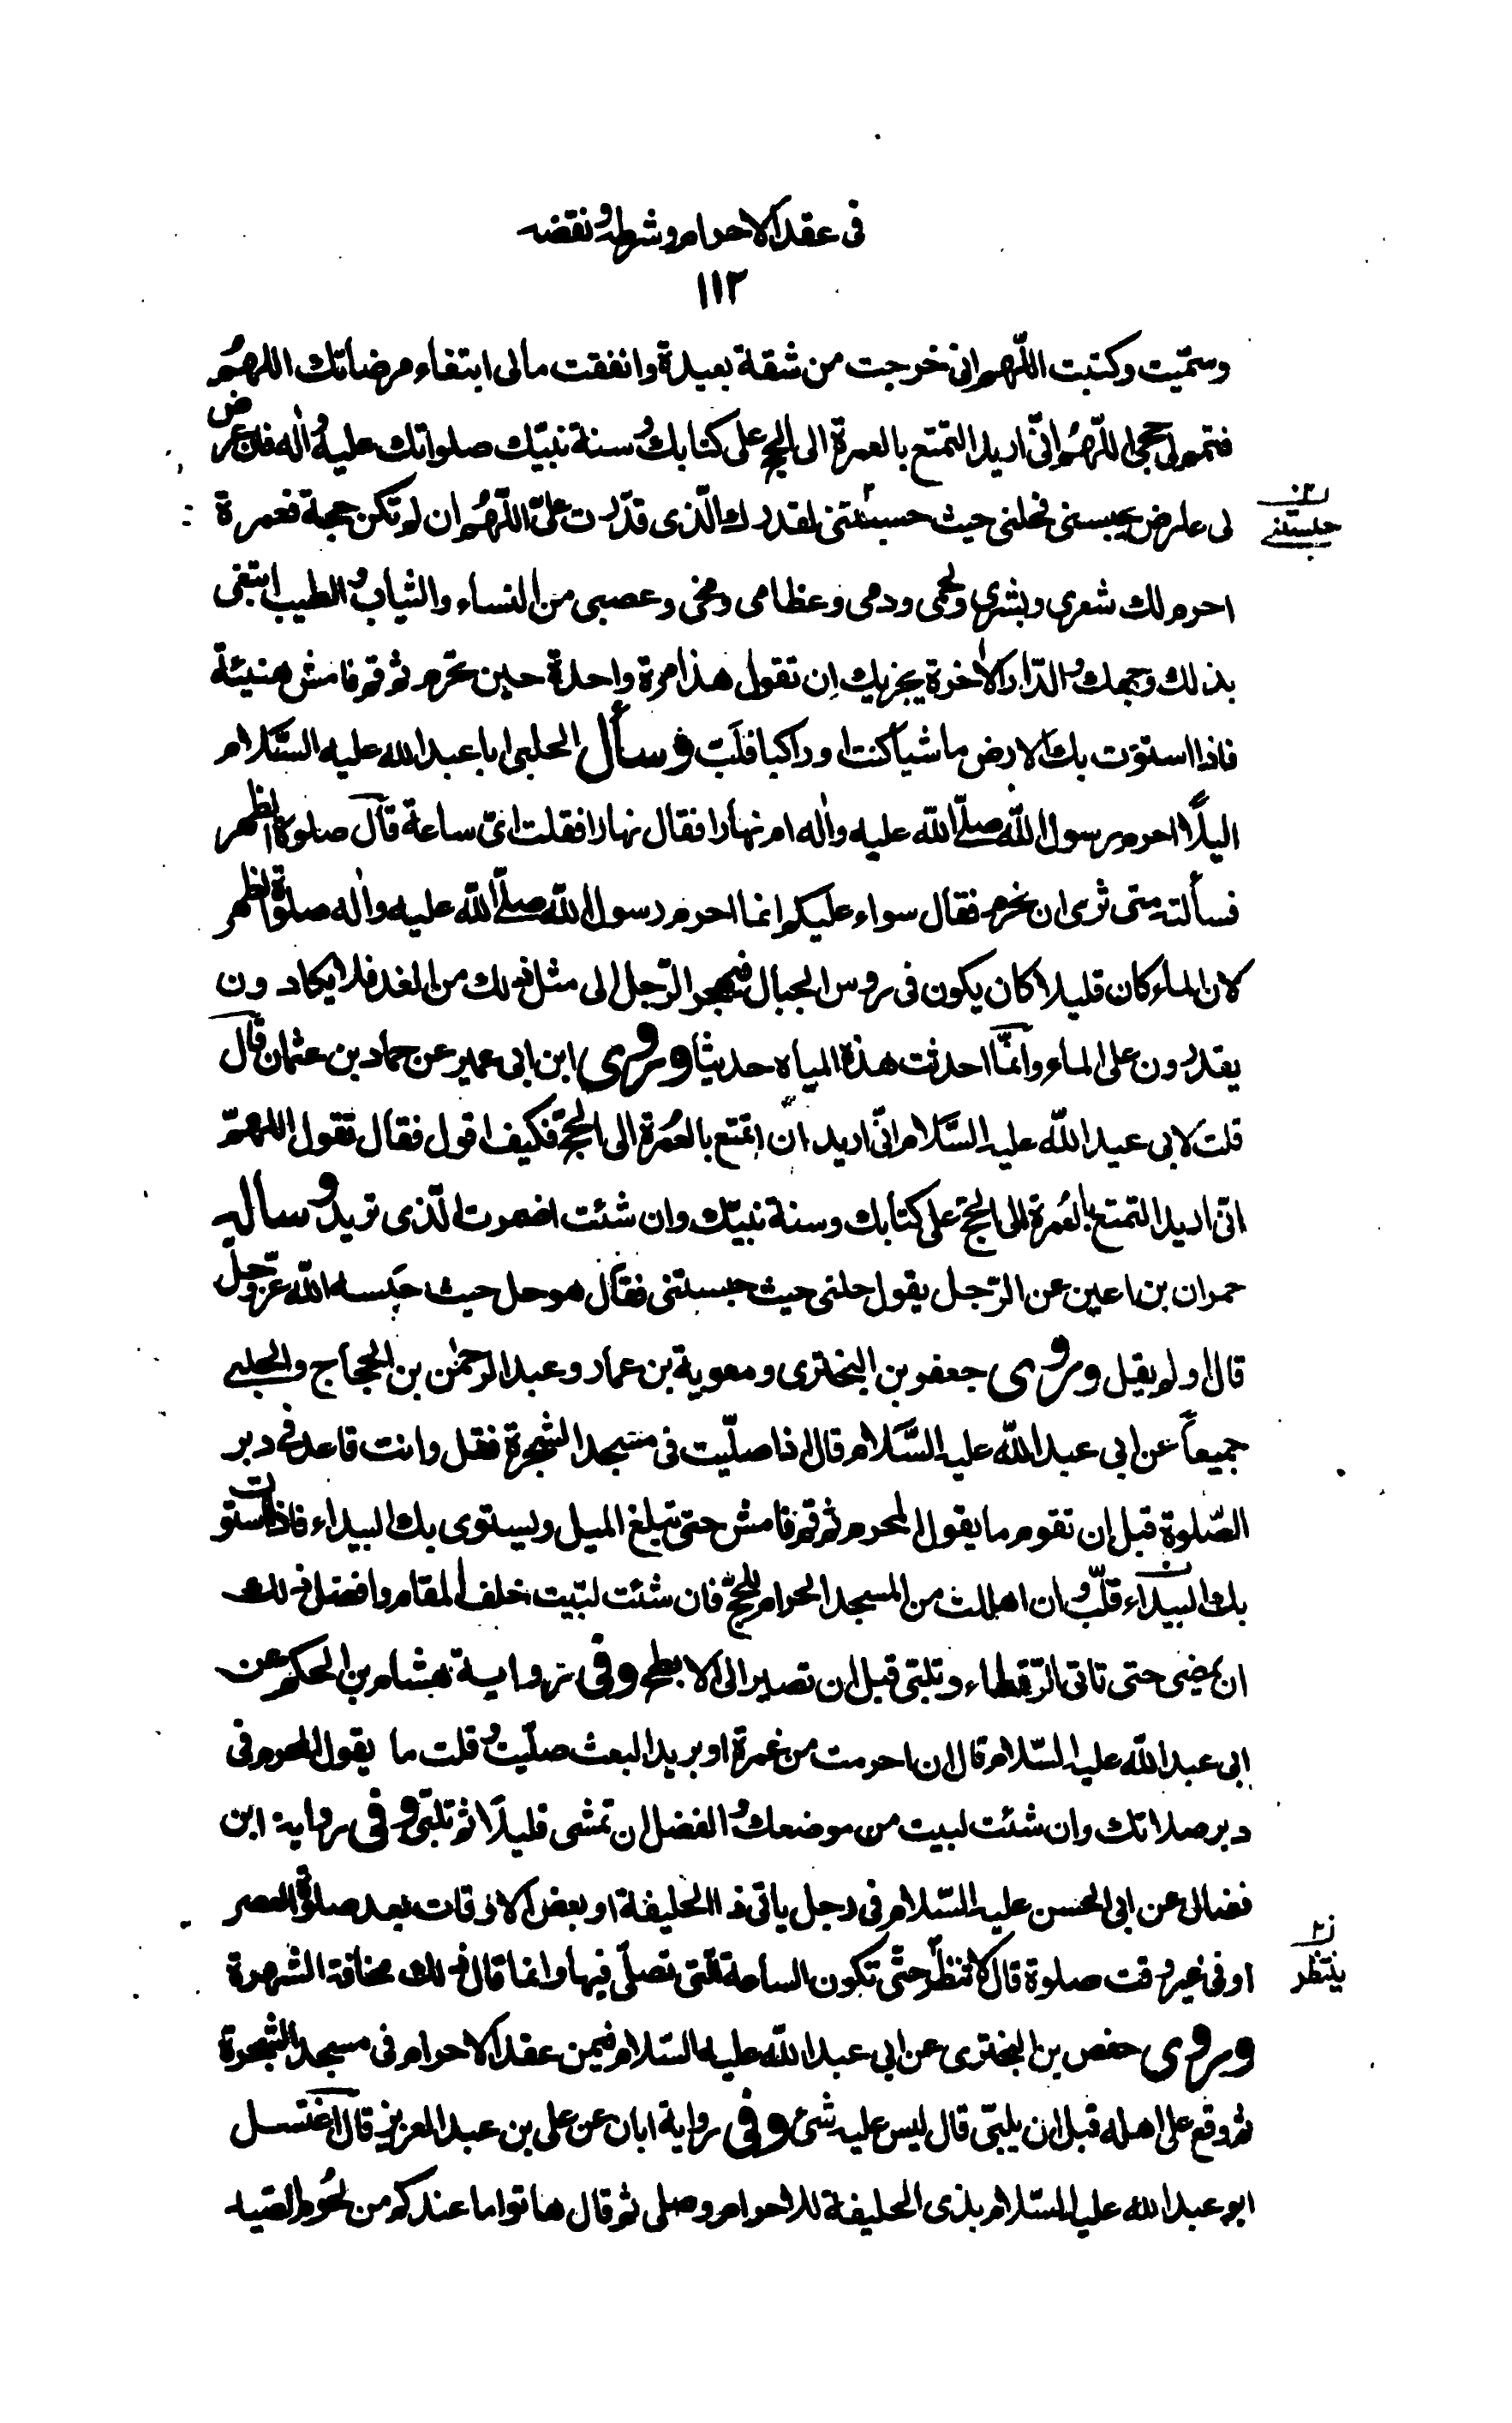 فى عقد الاحرام وشرطه ونقضه
١١٢
وسمّيت وكتبت اللّهم انى خرجت من شقة بعيدة وانفقت مالى ابتغاء مرضاتك اللهمُ
فتمم لى حجى اللّهمُ انّى اريد التمتع بالعمرة الى الحج على كتابك وُ سنة نبيّك صلواتك عليه وُ اٰله فان عرض
لى عارض يحبسنى فحلنى حيث حبستنى لقدرك الّذى قدّرت علىّ اللّهمُ ان لم تكن حجة فعمرة
حبستنى
احرم لك شعرى وبشرى ولحمى ودمى وعظامى ومخى وعصبى من النساء والثياب وُ الطيب ابتغى
بذلك وجهك وُ الدّار الاٰخرة يجزيك ان تقول هذا مرة واحدة حين تحرم ثم قم فامش هنيئة
فاذا استوت بك الارض ماشيا كنت او راكبا فلَبّ وسأل الحلبى ابا عبد الله عليه السَّلام
اليلًا احرم رسول اللّٰه صلّے اللّٰه عليه واٰله ام نهارا فقال نهارا فقلت اىّ ساعة قال صلوة الظهر
فسألته متى ترى ان نحرم فقال سواء عليكم انما احرم رسول اللّٰه صلّے اللّٰه عليه واٰله صلوة الظهر
لان الماء كان قليلا كان يكون فى رؤس الجبال فيهجر الرّجل الى مثل ذلك من الغد فلا يكادون
يقدرون على الماء وانّما احدثت هذه المياه حديثا وروى ابن ابى عمير عن حماد بن عثمان قال
قلت لابى عبد اللّٰه عليه السَّلام انّى اريد ان اتمتع بالعُمرة الى الحجّ فكيف اقول فقال تقول اللهمّ
انى اريد التمتع بالعُمرة الى الحجّ على كتابك وسنة نبيّك وان شئت اضمرت الّذى تريد وُساله
حمران بن اعين عن الرّجل يقول حلنى حيث حبستنى فقال هو حل حيث حبسه اللّٰه عزّوجلّ
قال او لم يقل وروى جعفر بن البخترى ومعوية بن عمار وعبد الرحمٰن بن الحجاج والحلبى
جميعاً عن ابى عبد اللّٰه عليه السَّلام قال اذا صلّيت فى مسجد الشجرة فقل وانت قاعد فى دبر
الصّلوة قبل ان تقوم ما يقول المحرم ثم قم فامش حتى تبلغ الميل ويستوى بك البيداء فاذا استوت
بك البيداء فلبّ وُ ان اهللت من المسجد الحرام للحجّ فان شئت لبّيت خلف المقام وافضل ذلك
ان تمضى حتى تاتى الرّقطاء وتلبّى قبل ان تصير الى الابطح وفى رواية هشام بن الحكم عن
ابى عبد اللّٰه عليه السّلام قال ان احرمت من غمرة او بريد البعث صلّيت وُ قلت ما يقول المحرم فى
دبر صلاتك وان شئت لبيت من موضعك وُ الفضل ان تمشى قليلًا ثم تلبّى وفى رواية ابن
فضال عن ابى الحسن عليه السّلام فى رجل ياتى ذا الحليفة او بعض الاوقات بعد صلوة العصر
او فى غير وقت صلوة قال لا تنظر حتّى تكون الساعة الّتى تصلّى فيها وانما قال ذلك مخافة الشهرة
ينتظر
وروى حفص بن البخترى عن ابى عبد اللّٰه عليه السّلام فيمن عقد الاحرام فى مسجد الشجرة
ثم وقع على اهله قبل ان يلبّى قال ليس عليه شئ وفى رواية ابان عن على بن عبد العزيز قال اغتسل
ابو عبد الله عليه السّلام بذى الحليفة للاحرام وصلى ثم قال هاتوا ما عندكم من لحوم الصيد